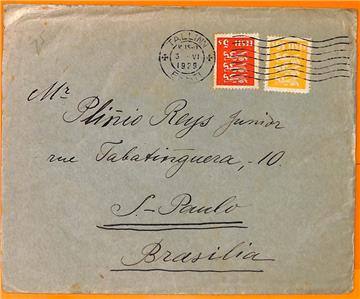 TALLINN
3 -VI
1929
EESTI
EESTI
5 s
Mr
Plinio Reys Junior
rue Tabatinguera,-10.
S.-Paulo
Brasilia